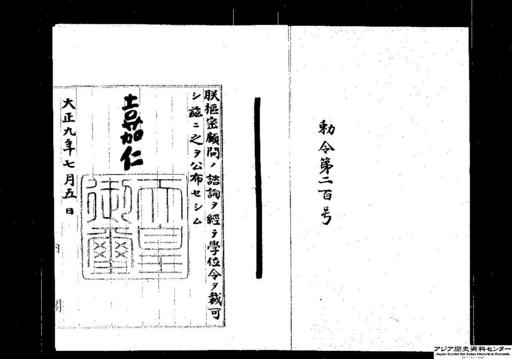 勅令第二百号
朕樞密顧問ノ諮詢ヲ經テ學位令ヲ裁可
シ茲ニ之ヲ公布セシム
嘉仁
天皇
御璽
大正九年七月五日
アジア歴史資料センター
Japan Center for Asian Historical Records